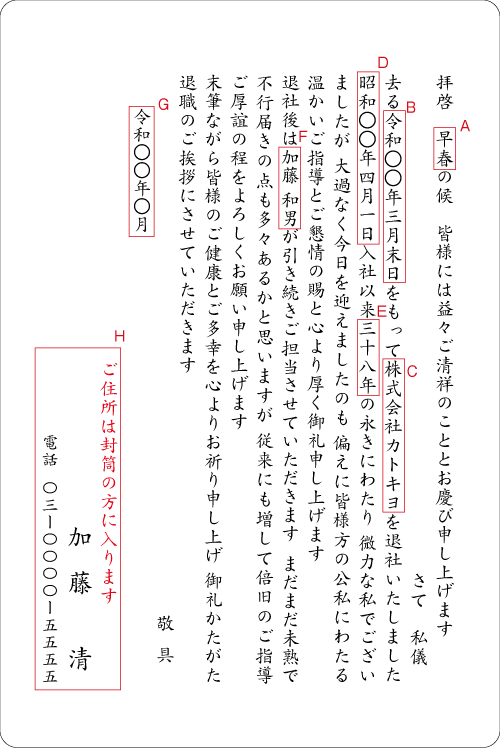 拝啓 早春の候 皆様には益々ご清祥のこととお慶び申し上げます
A
さて 私儀
去る令和〇〇年三月末日をもって株式会社カトキヨを退社いたしました
B
C
昭和〇〇年四月一日入社以来三十八年の永きにわたり 微力な私でござい
D
E
ましたが 大過なく今日を迎えましたのも 偏えに皆様方の公私にわたる
温かいご指導とご懇情の賜と心より厚く御礼申し上げます
退社後は加藤 和男が引き続きご担当させていただきます まだまだ未熟で
F
不行届きの点も多々あるかと思いますが 従来にも増して倍旧のご指導
ご厚誼の程をよろしくお願い申し上げます
末筆ながら皆様のご健康とご多幸を心よりお祈り申し上げ 御礼かたがた
退職のご挨拶にさせていただきます
敬具
G
令和〇〇年〇月
H
ご住所は封筒の方に入ります
加藤 清
電話 〇三ー〇〇〇〇ー五五五五